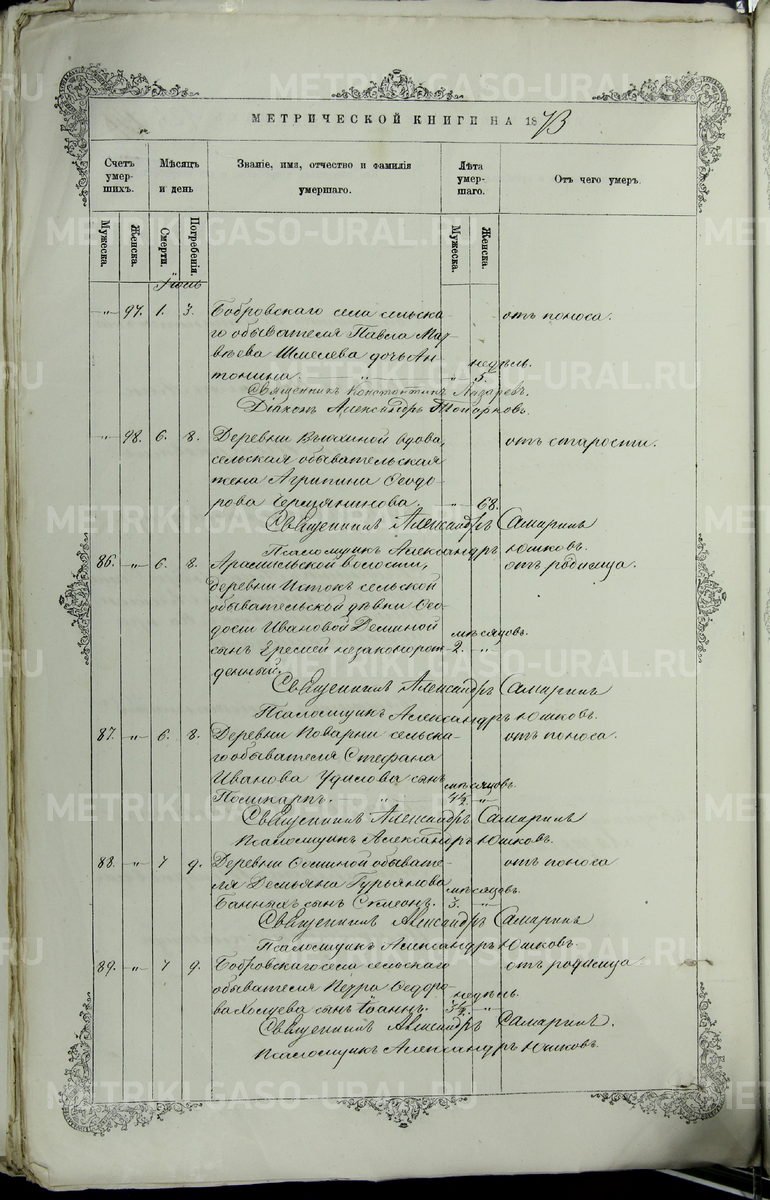 МЕТРИЧЕСКОЙ КНИГИ НА 1873
Счетъ умер- шихъ.
Мѣсяцъ и день
Званіе, имя, отчество и фамилія умершаго.
Лѣта умер- шаго.
Отъ чего умеръ.
Мужеска.
Женска.
Смерти.
Погребенія.
Мужеска.
Женска.
Іюль
" 97. 1. 3. Бобровскаго села сельска- отъ поноса.
го обывателя Павла Мат-
вѣева Шмелева дочь Ан- недѣль.
тонина. " " 5.
Священникъ Константинъ Лазаревъ.
Діаконъ Александръ Топорковъ.
" 98. 6. 8. Деревни вдова, отъ старости.
сельская обывательская
жена Агрипина Ѳеодо-
рова " 68.
Священникъ Александръ Самаринъ
Псаломщикъ Александръ Юшковъ.
86. " 6. 8. Арамильской волости, отъ родимца.
деревни Истокъ сельской
обывательской дѣвки Ѳео-
досіи Ивановой Деминой мѣсяцовъ.
сынъ Еремей незаконорож- 2. "
денный.
Священникъ Александръ Самаринъ
Псаломщикъ Александръ Юшковъ.
87. " 6. 8. Деревни Поварни сельска- отъ поноса.
го обывателя Стефана
Иванова Удилова сынъ мѣсяцовъ.
Поликарпъ. " 4½ "
Священникъ Александръ Самаринъ
Псаломщикъ Александръ Юшковъ.
88. " 7 9. Деревни обывате- отъ поноса
ля Демьяна Гурьянова мѣсяцовъ.
Банныхъ сынъ Симеонъ. 3. "
Священникъ Александръ Самаринъ
Псаломщикъ Александръ Юшковъ.
89. " 7 9. Бобровскаго села сельскаго отъ родимца
обывателя Петра Ѳедоро- недѣль.
ва сынъ Іоаннъ. 3½. "
Священникъ Александръ Самаринъ.
Псаломщикъ Александръ Юшковъ.
METRIKI.GASO-URAL.RU